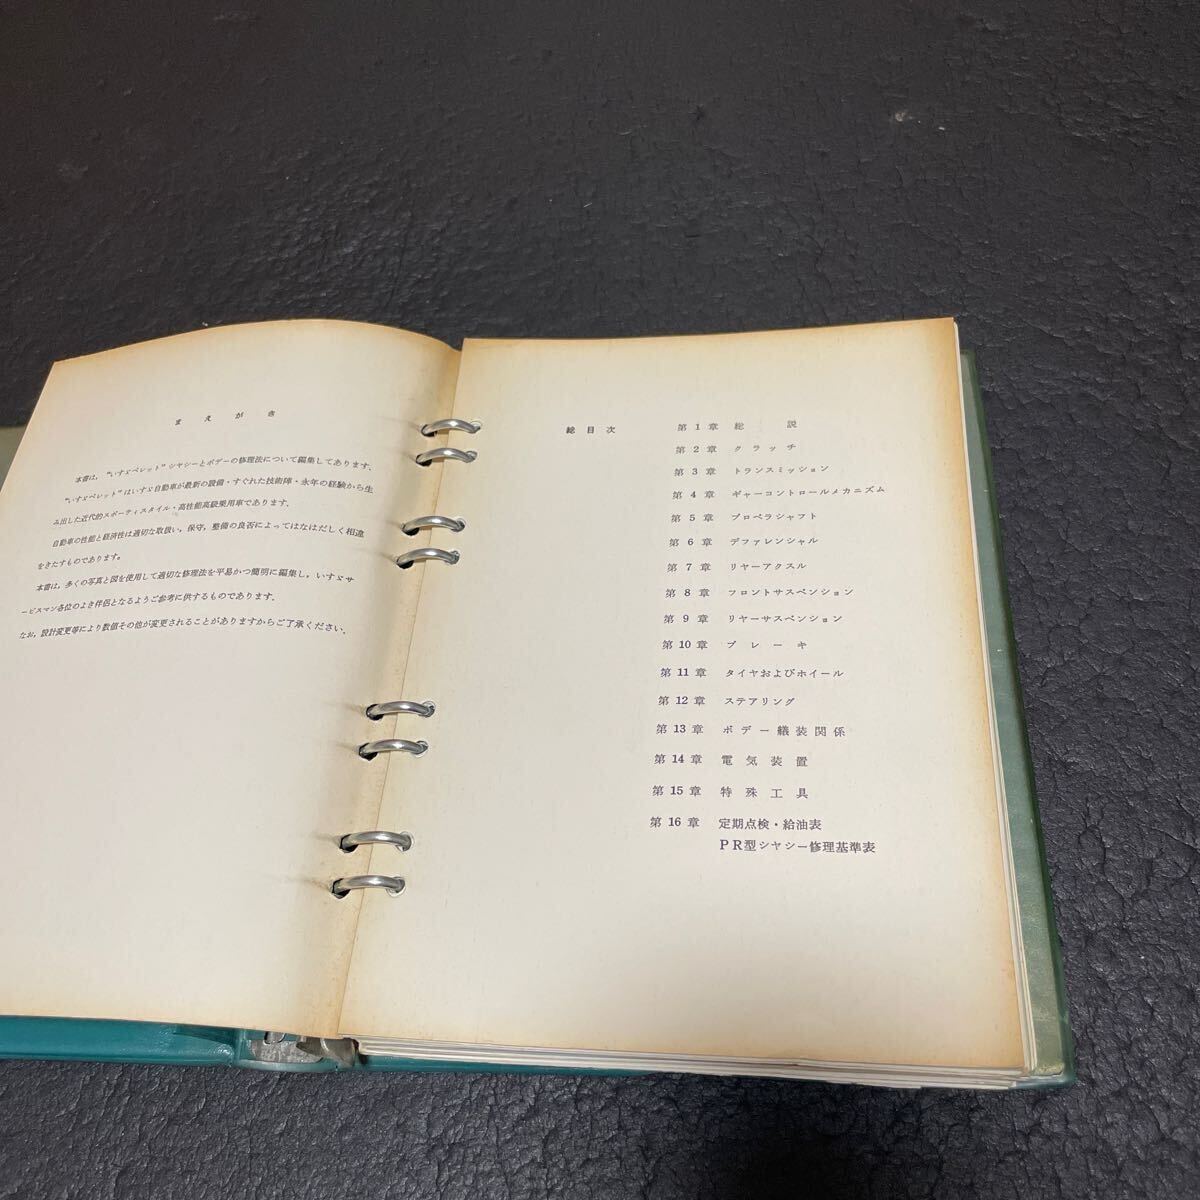 まえがき
本書は，“いすゞベレット”シヤシーとボデーの修理法について編集してあります．
“いすゞベレット”はいすゞ自動車が最新の設備・すぐれた技術陣・永年の経験から生
み出した近代的スポーティスタイル・高性能高級乗用車であります．
自動車の性能と経済性は適切な取扱い，保守，整備の良否によってはなはだしく相違
をきたすものであります。
本書は，多くの写真と図を使用して適切な修理法を平易かつ簡明に編集し，いすゞサ
ービスマン各位のよき伴侶となるようご参考に供するものであります．
なお，設計変更等により数値その他が変更されることがありますからご了承ください．
総目次
第1章 総説
第2章 クラッチ
第3章 トランスミッション
第4章 ギャーコントロールメカニズム
第5章 プロペラシャフト
第6章 デファレンシャル
第7章 リヤーアクスル
第8章 フロントサスペンション
第9章 リヤーサスペンション
第10章 ブレーキ
第11章 タイヤおよびホイール
第12章 ステアリング
第13章 ボデー艤装関係
第14章 電気装置
第15章 特殊工具
第16章 定期点検・給油表
PR型シヤシー修理基準表